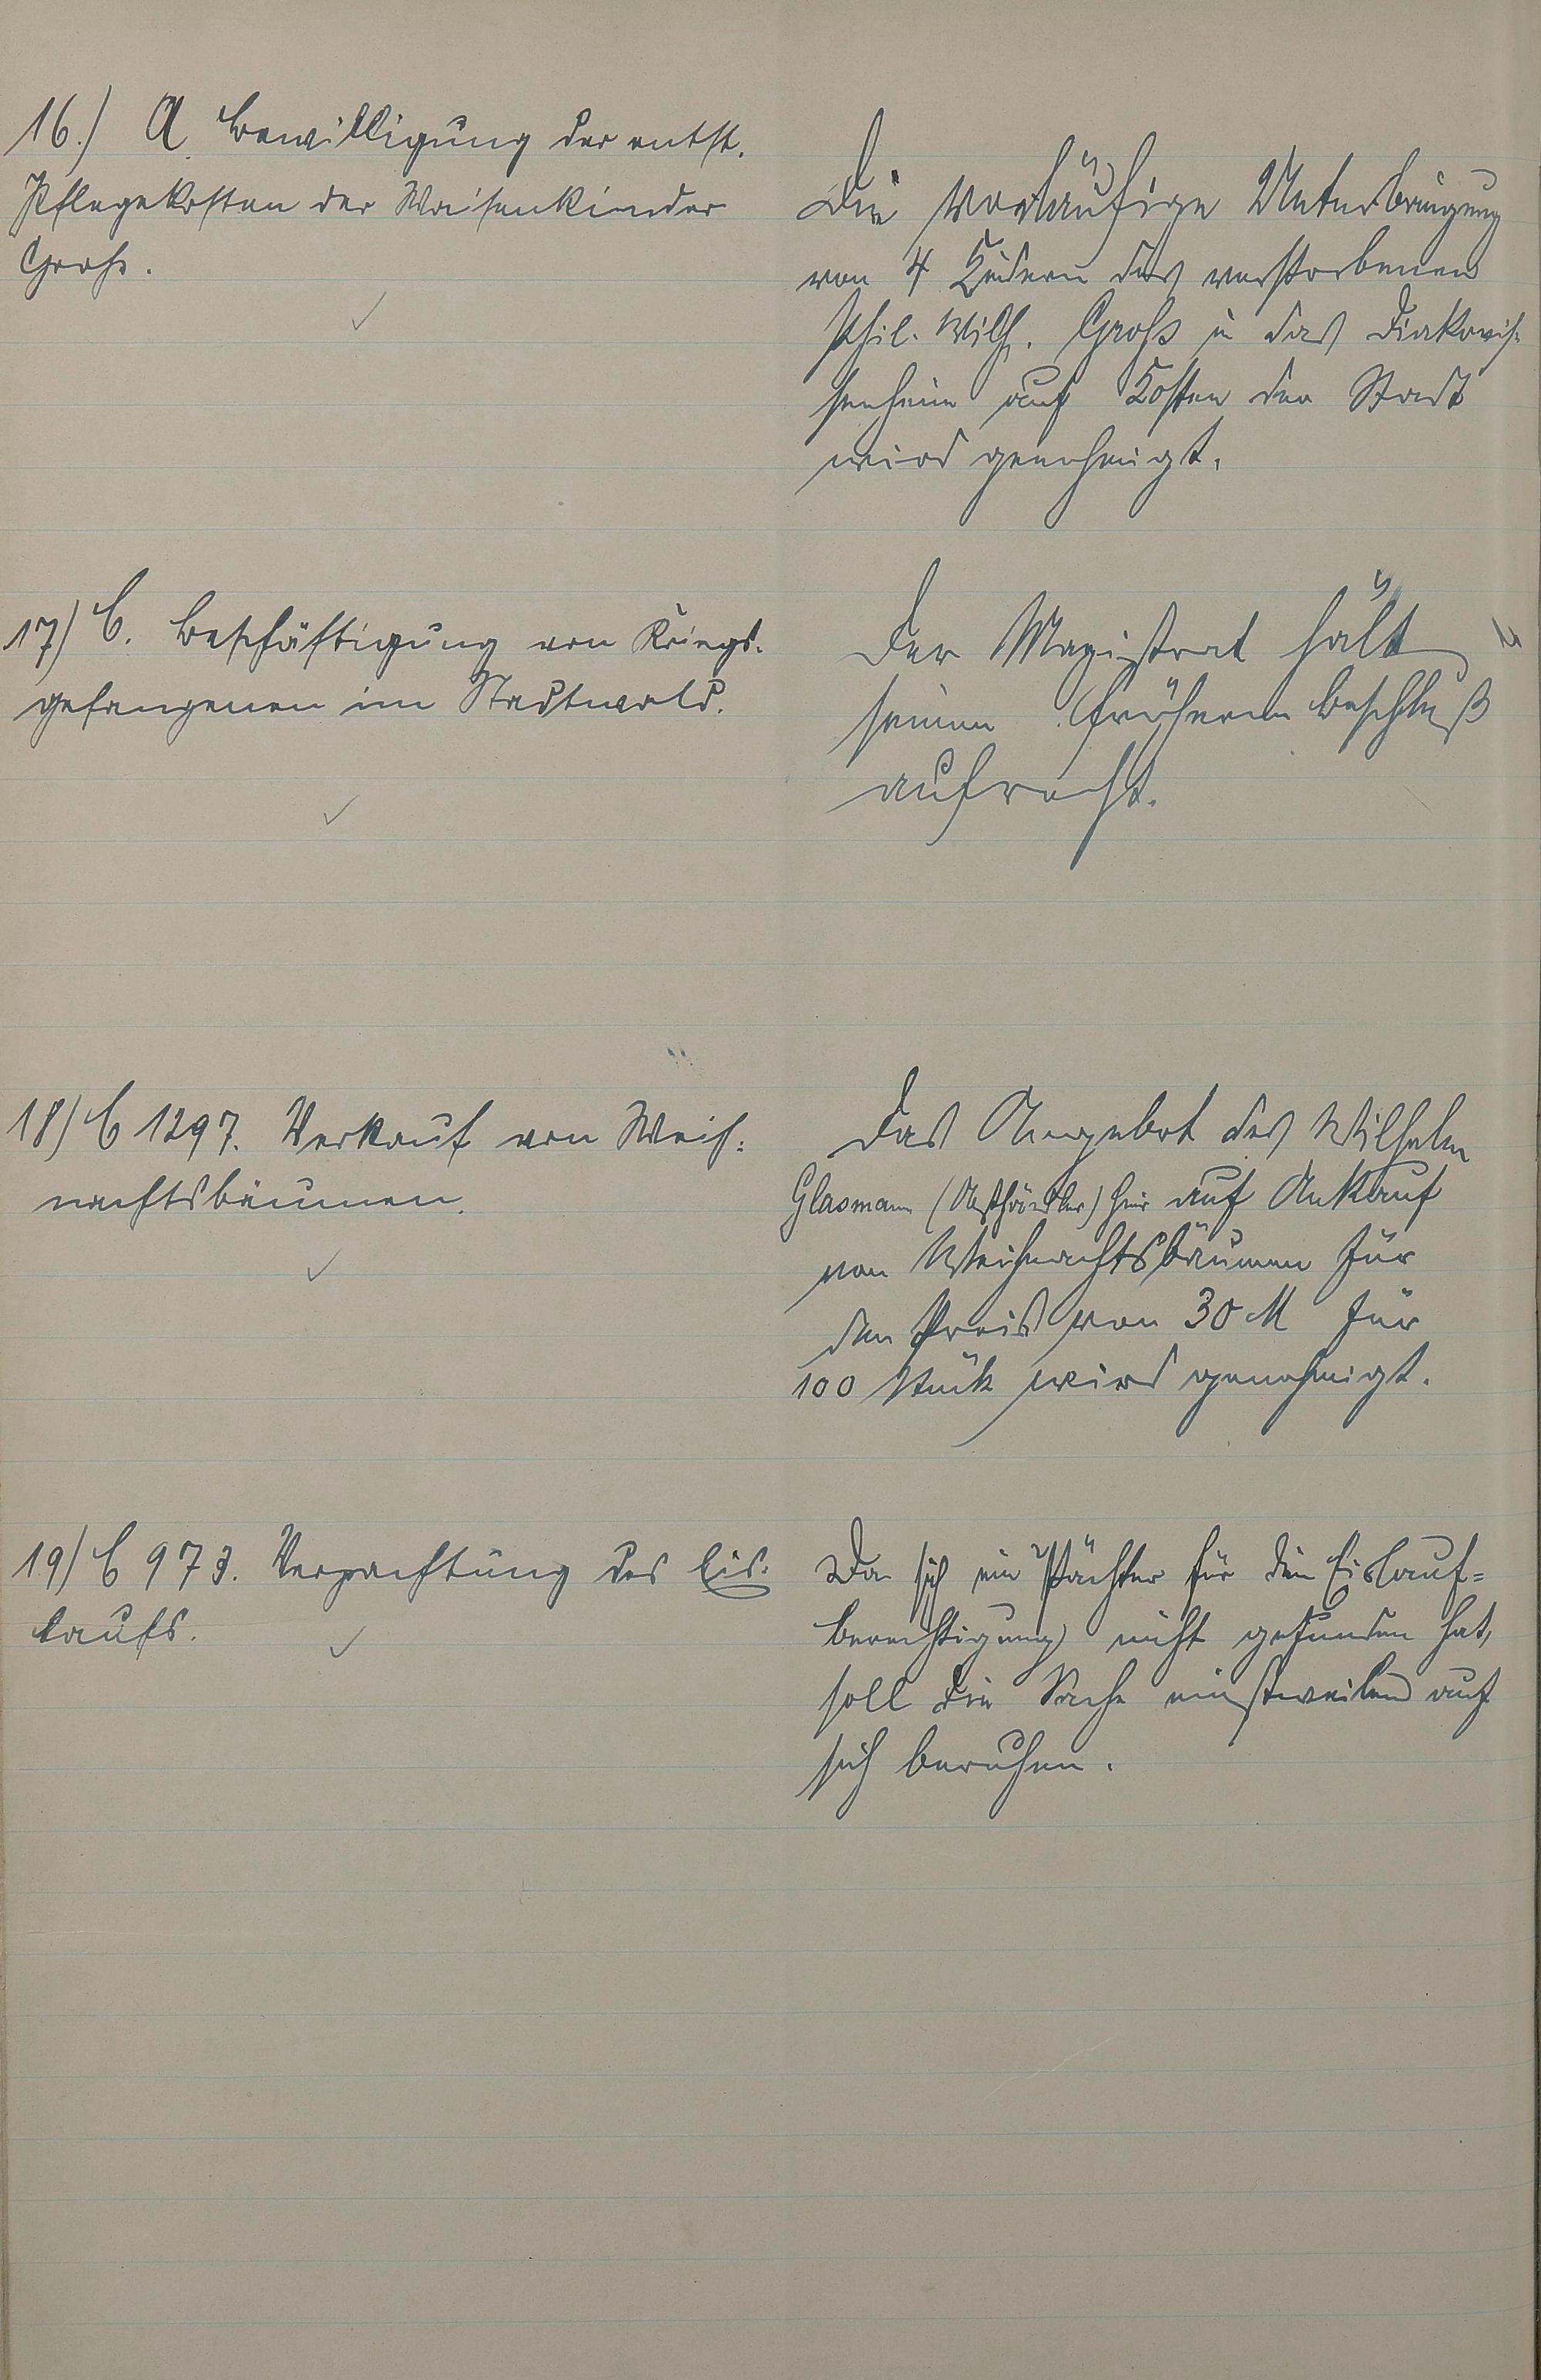 16.) A. Bewilligung der entst.
Pflegekosten der Waisenkinder
Groß.
Die vorläufige Unterbringung
von 4 Kindern des verstorbenen
Phil. Wilh. Groß in das Diakonis-
senheim auf Kosten der Stadt
wird genehmigt.
17) C. Beschäftigung von Kriegs-
gefangenen im Stadtwald.
Der Magistrat hält
seinen früheren Beschluß
aufrecht.
18) C 1297. Verkauf von Weih-
nachtsbäumen.
Das Angebot des Wilhelm
Glasmann (Obsthändler) hier auf Ankauf
von Weihnachtsbäumen für
den Preis von 30 M für
100 Stück wird genehmigt.
19) C 973. Verpachtung des Eis-
laufs.
Da sich ein Pächter für die Eislauf=
berechtigung nicht gefunden hat,
soll die Sache einstweilen auf
sich beruhen.